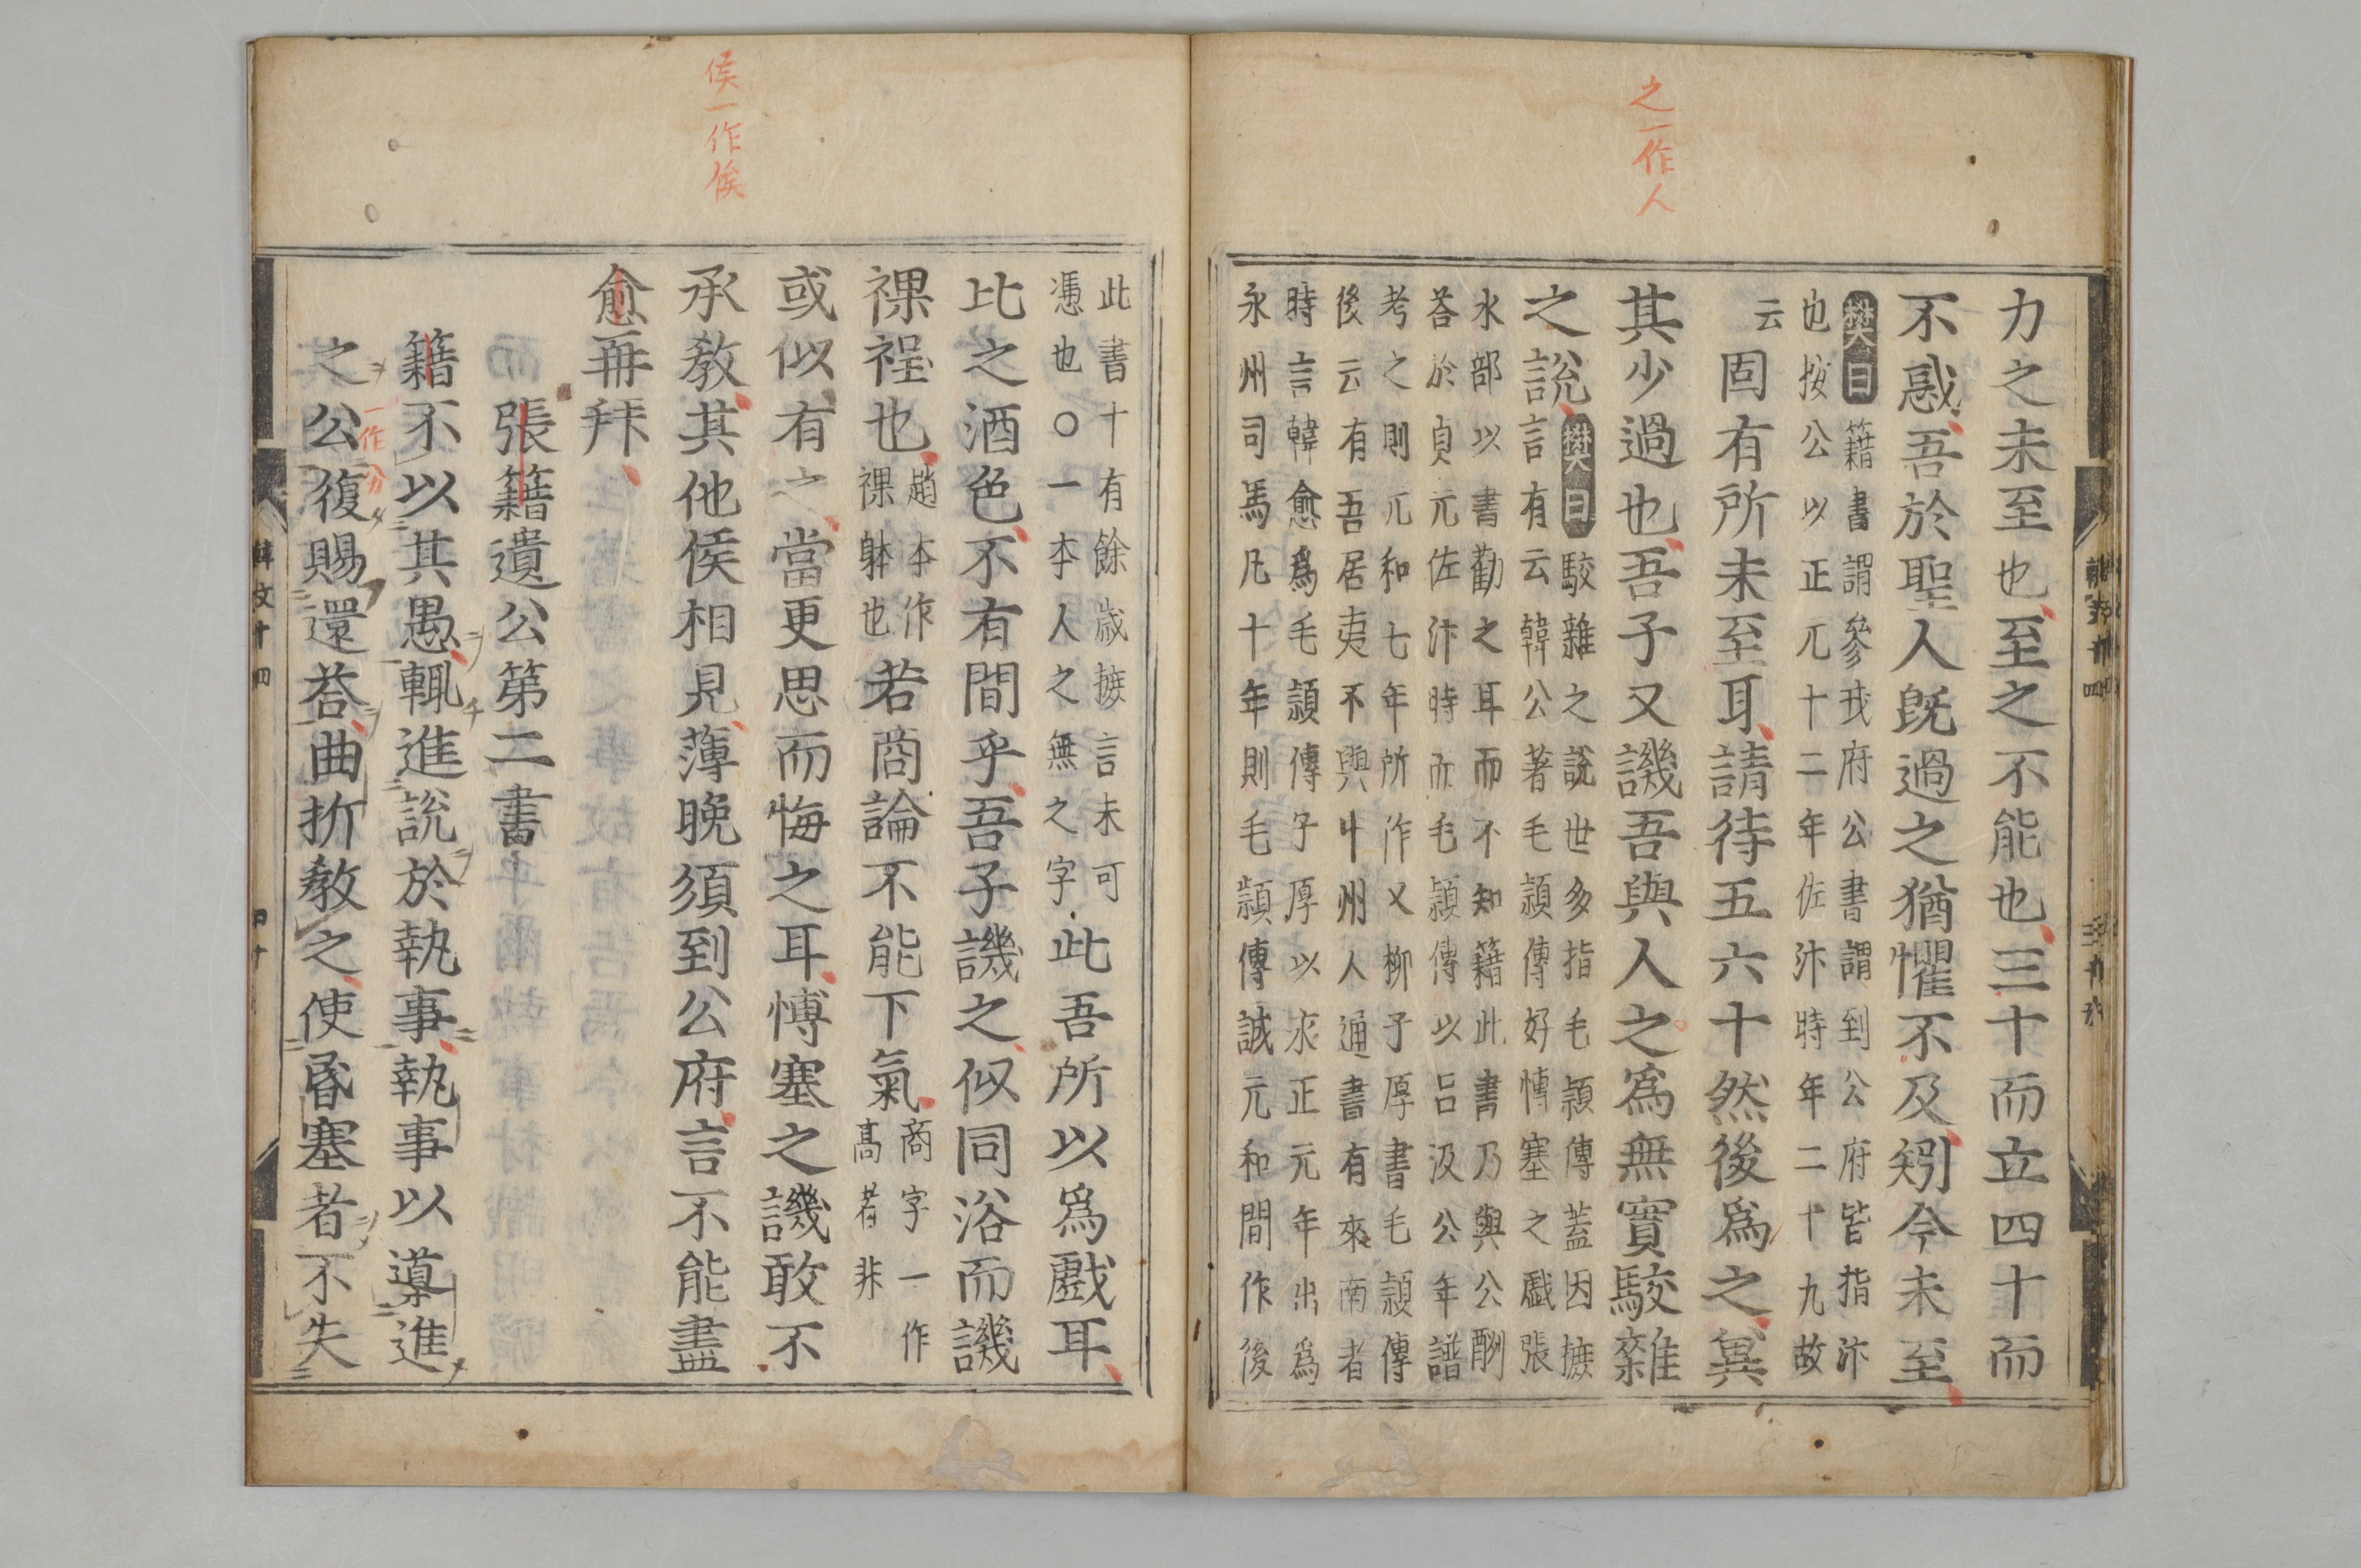 之一作人
力之未至也至之不能也三十而立四十而
不惑吾於聖人旣過之猶懼不及矧今未至
樊曰籍書謂參戎府公書謂到公府皆指汴
也按公以正元十二年佐汴時年二十九故
云
固有所未至耳請待五六十然後爲之冀
其少過也吾子又譏吾與人之爲無實駮雜
之說
樊曰駮雜之說世多指毛穎傳蓋因摭
言言有云韓公著毛穎傳好愽塞之戱張
水部以書勸之耳而不知籍此書乃與公酬
荅於貞元佐汴時而毛穎傳以呂汲公年譜
考之則元和七年所作又柳子厚書毛穎傳
後云有吾居夷不與中州人通書有來南者
時言韓愈爲毛穎傳子厚以永正元年出爲
永州司馬凡十年則毛穎傳誠元和間作後
韓文十四
侯一作俟
此書十有餘歲摭言未可
憑也○一本人之無之字
此吾所以爲戲耳
比之酒色不有間乎吾子譏之似同浴而譏
裸裎也
趙本作
裸躰也
若商論不能下氣
商字一作
高者非
或似有之當更思而悔之耳愽塞之譏敢不
承敎其他侯相見薄晚須到公府言不能盡
愈再拜
張籍遺公第二書
籍不以其愚輒進說於執事執事以導進
之公復賜還荅曲折敎之使昏塞者不失
一作分
韓文十四
四十